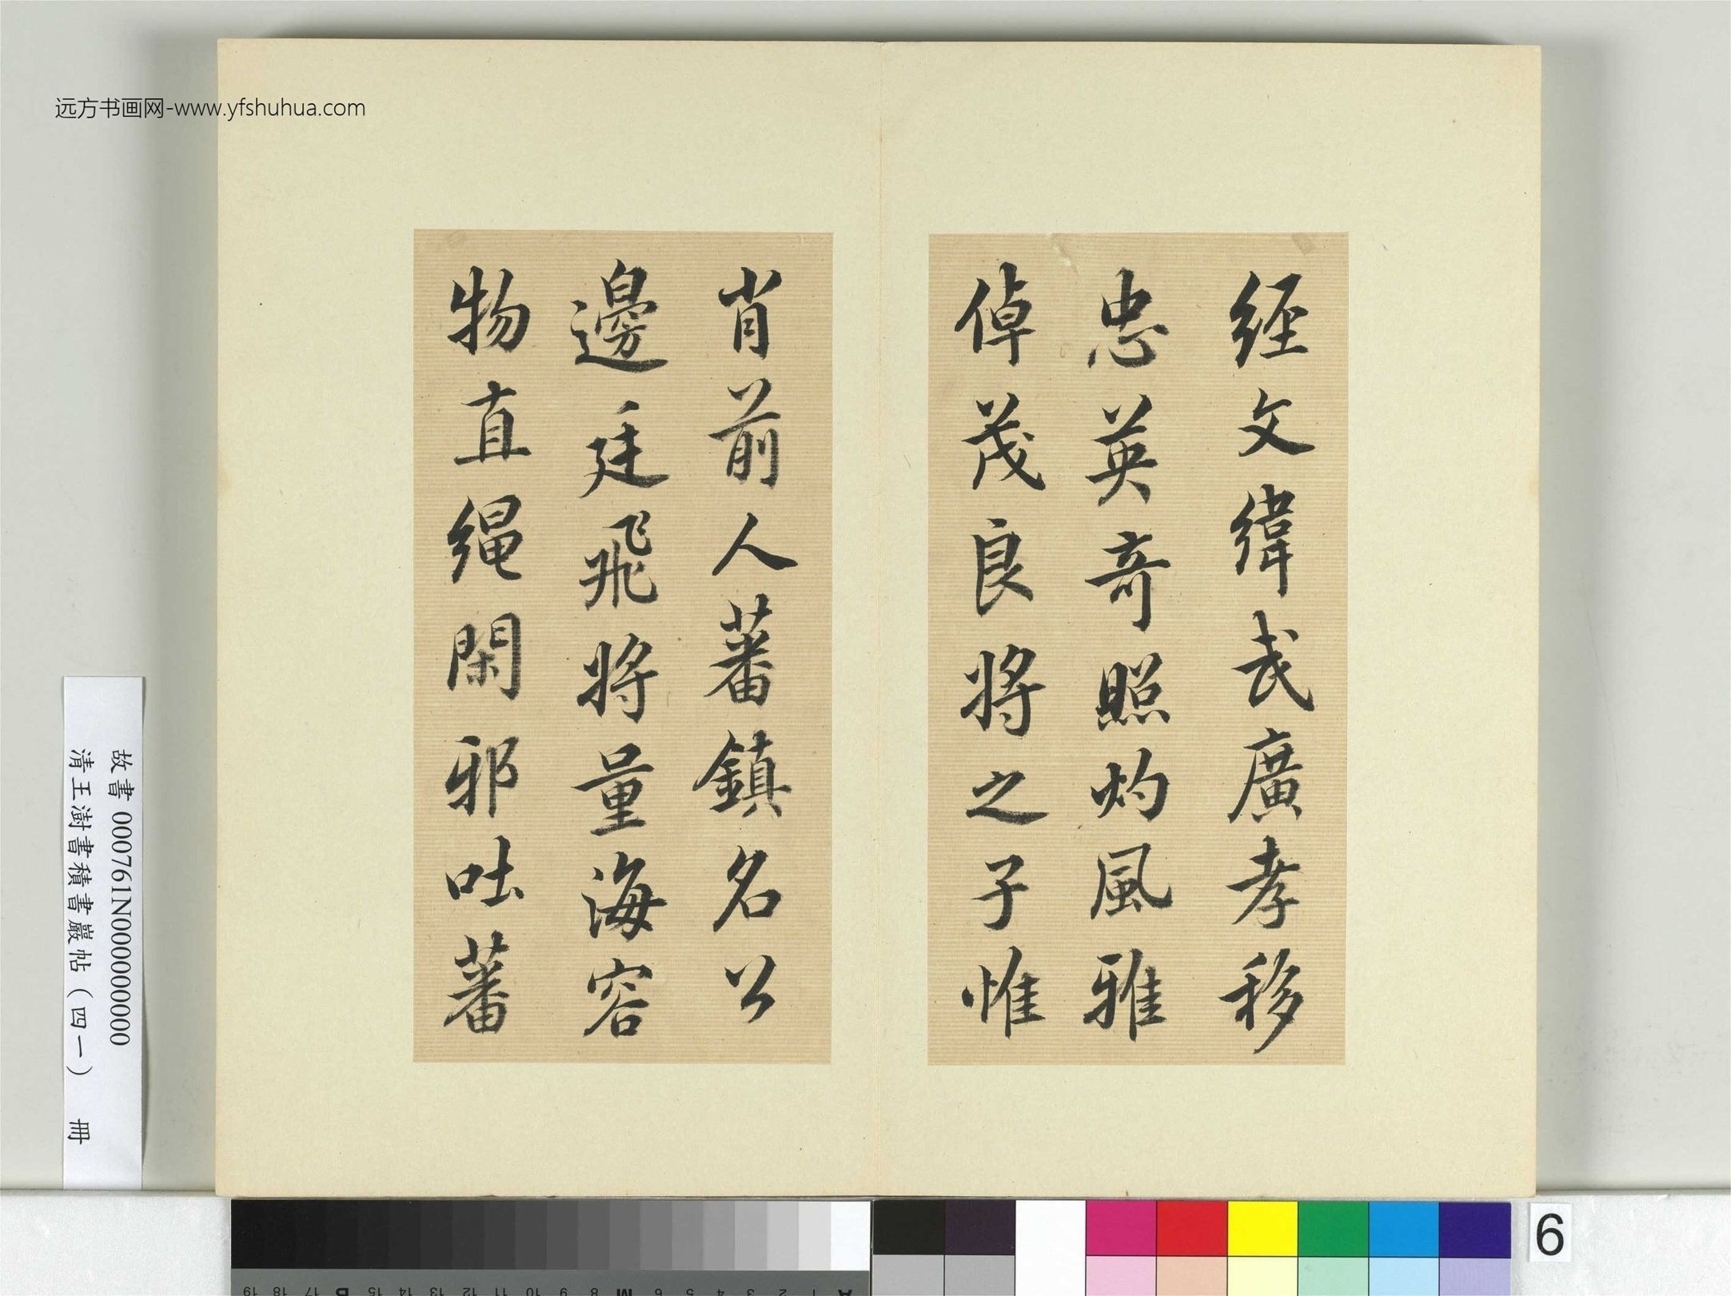 远方书画网-www.yfshuhua.com
经文緯武廣孝移
忠英奇照灼風雅
倬茂良將之子惟
肖前人蕃鎮名公
邊廷飛將量海容
物直繩閑邪吐蕃
故書 000761N000000000
清王澍書積書巖帖（四一） 冊
6